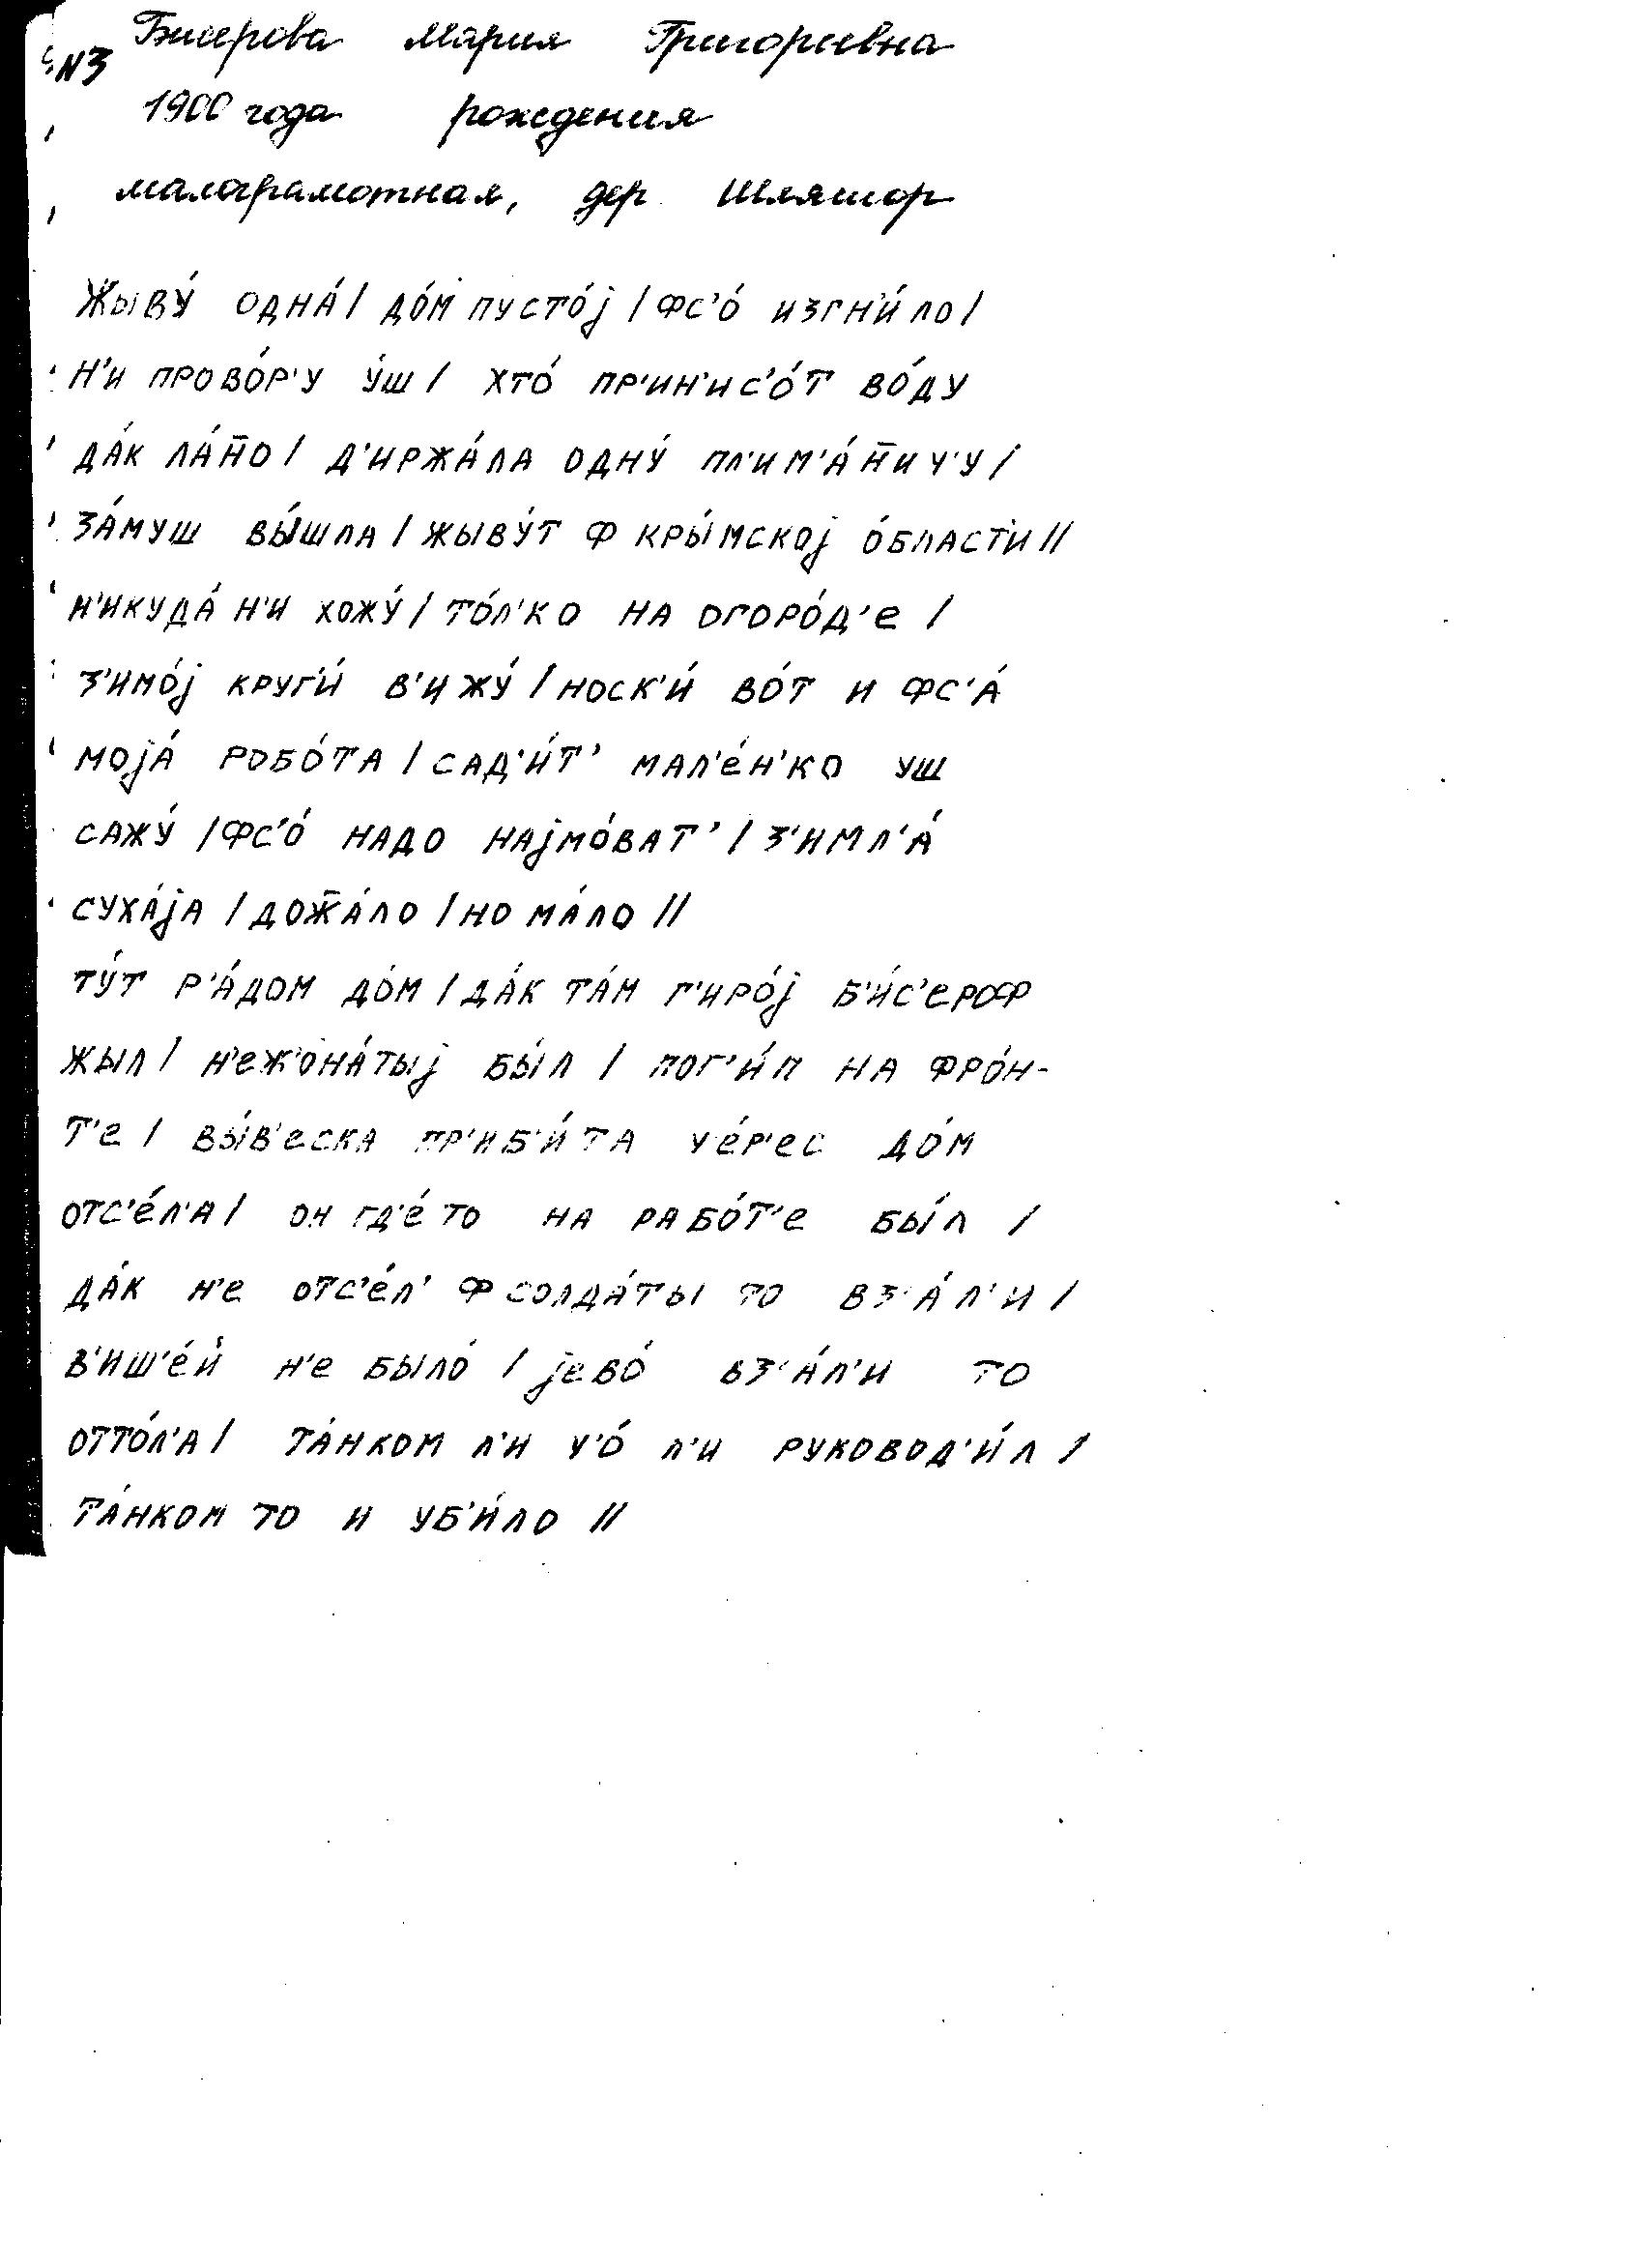 N3 Бисерова Мария Григорьевна
1900 года рождения
малограмотная, дер. Шляшор
Жыву́ одна́ / до́м пусто́j / фс'о́ изгн'и́ло /
н'и прово́р'у у́ш / хто́ пр'ин'ис'о́т во́ду
да́к ла́н̄о / д'иржа́ла одну́ пл'им'а́н̄ич'у /
за́муш вы́шла / жыву́т ф кры́мскоj о́бласт'и //
н'икуда́ н'и хожу́ / то́л'ко на огоро́д'е /
з'имо́j круг'и́ в'ижу́ / носк'и́ во́т и фс'а́
моjа́ робо́та / сад'и́т' мал'е́н'ко уш
сажу́ / фс'о́ надо наjмо́ват' / з'имл'а́
суха́jа / дож̄а́ло / но ма́ло //
ту́т р'а́дом до́м / да́к та́м г'иро́j б'и́с'ероф
жыл / н'еж'она́тыj бы́л / пог'и́п на фро́н-
т'е / вы́в'еска пр'иб'и́та че́р'ес до́м
отс'е́л'а / он гд'е́ то на рабо́т'е бы́л /
да́к н'е отс'е́л' ф солда́ты то вз'а́л'и /
в'иш'е́й н'е было́ / jево́ вз'а́л'и то
отто́л'а / та́нком л'и ч'о́ л'и руковод'и́л /
та́нком то и уб'и́ло //